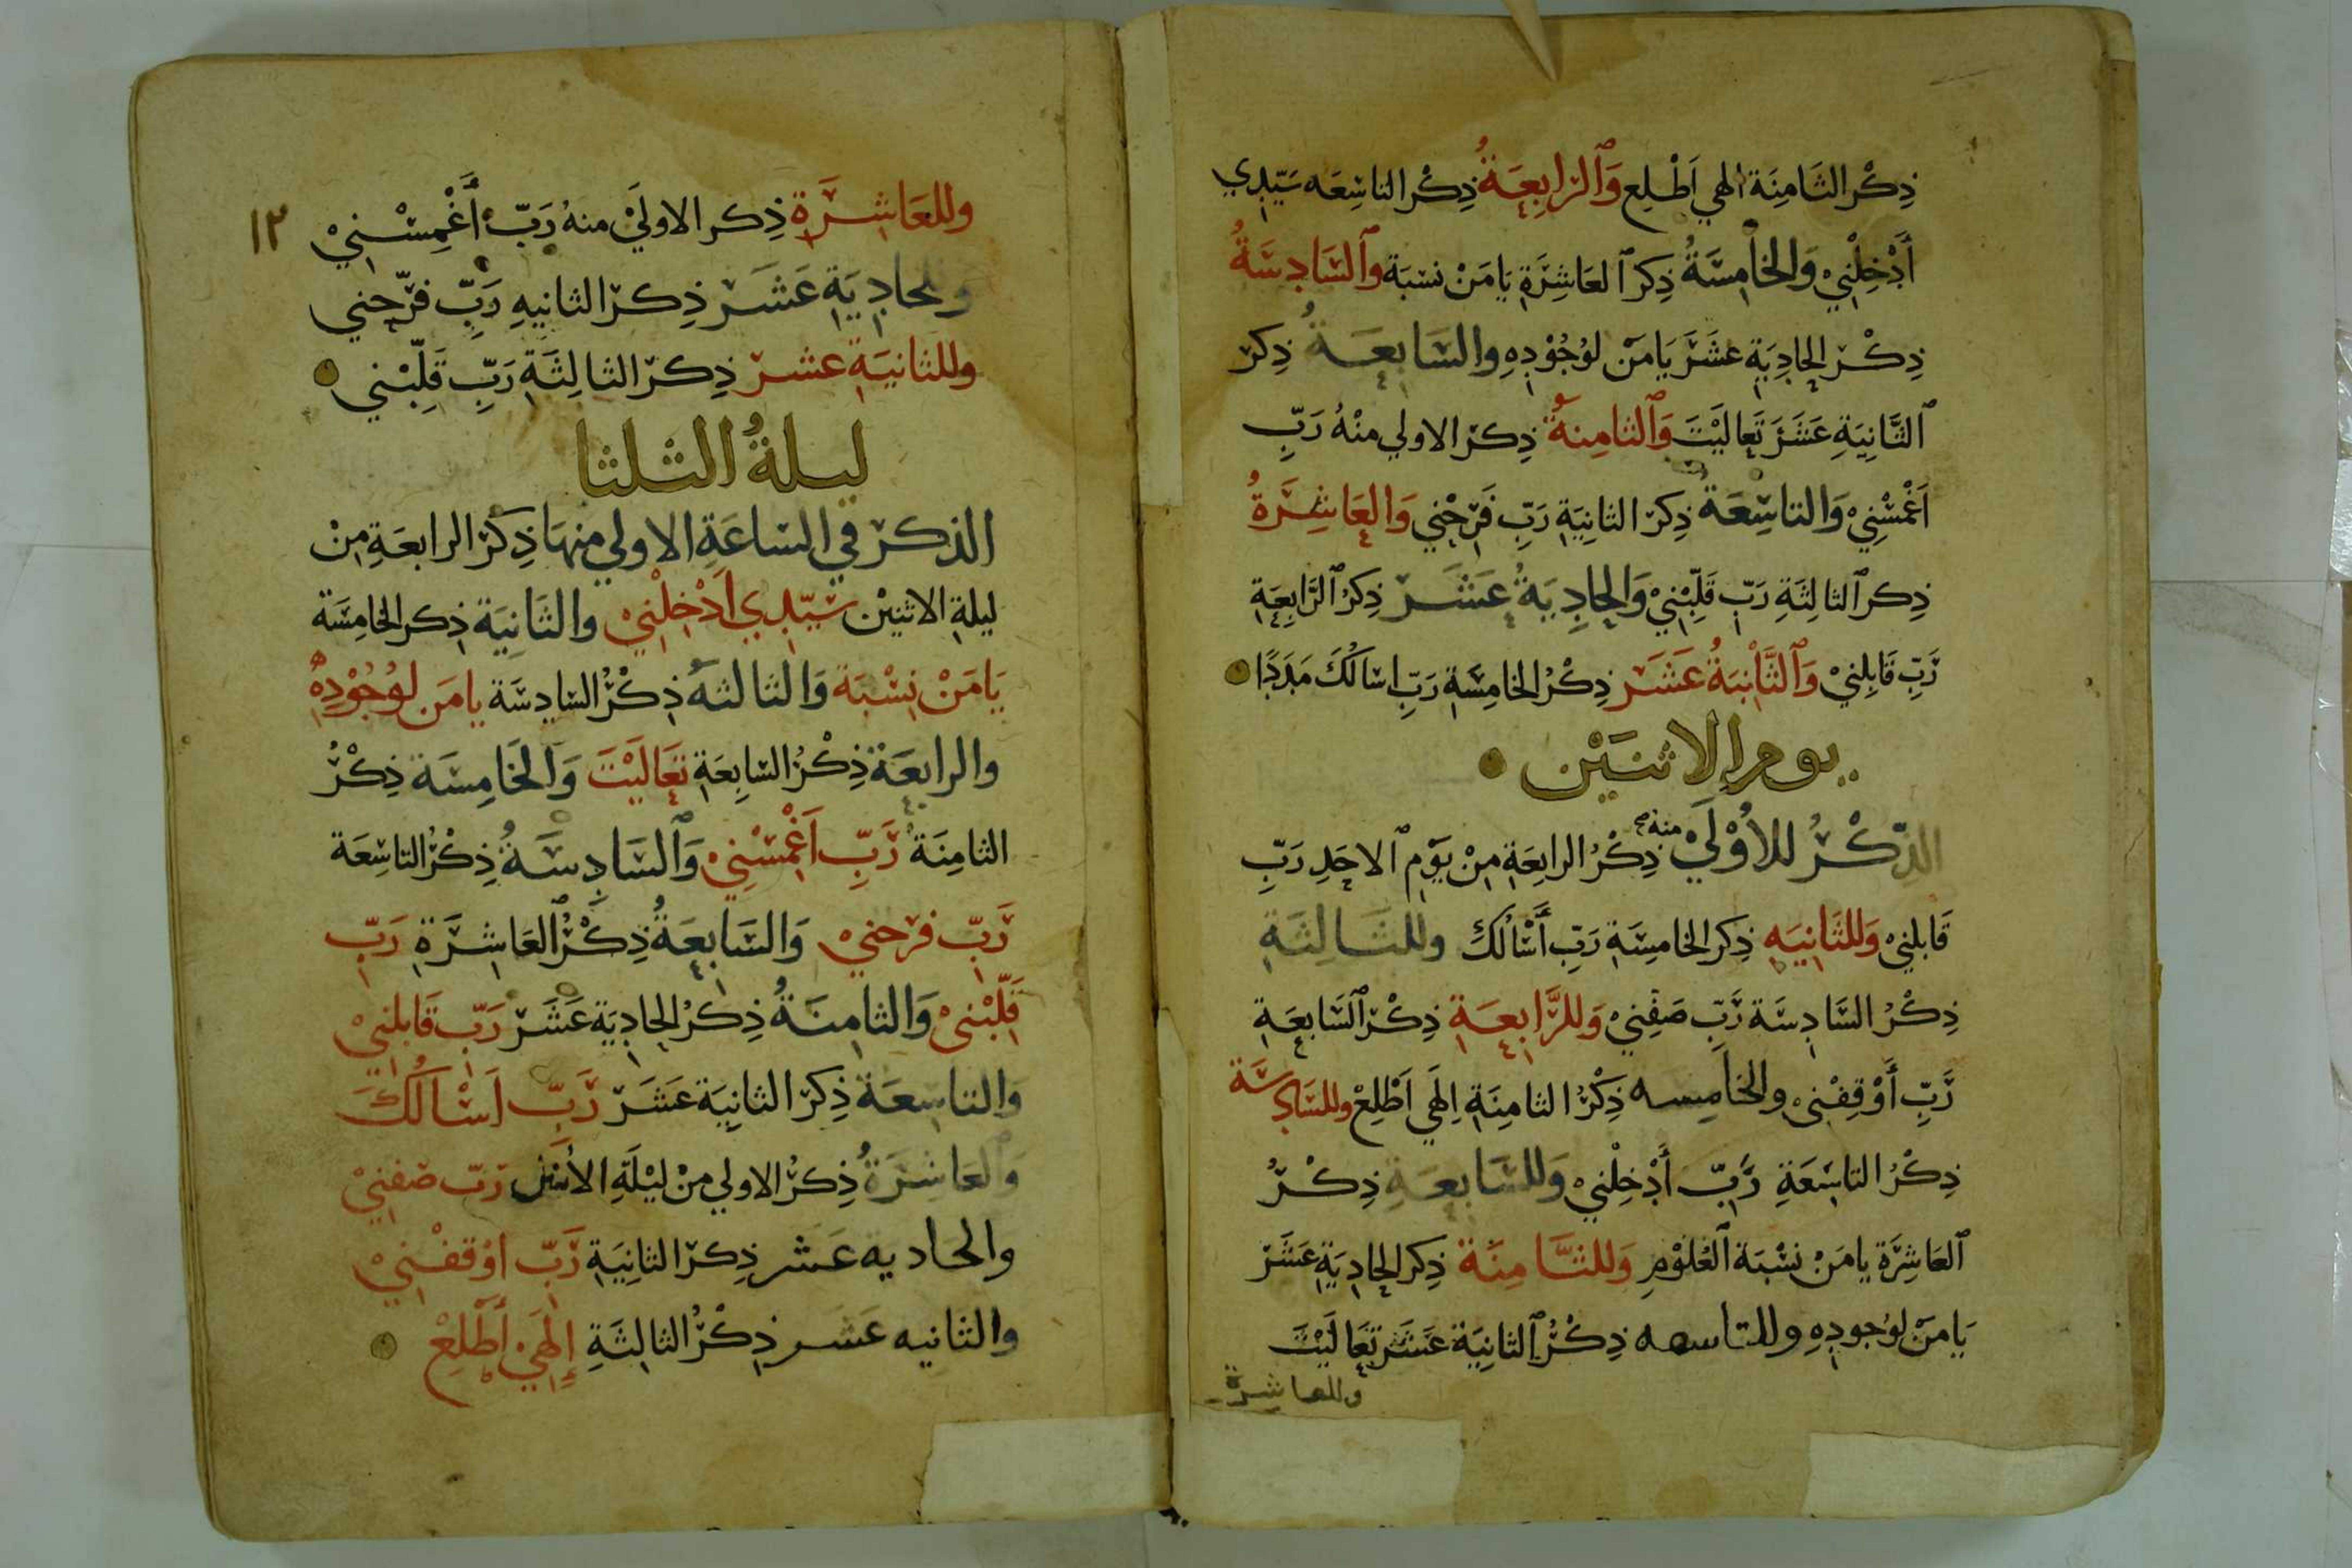 ذِكْر الثَّامِنَة الهي اَطْلِع وَٱلرَابِعَةُ ذِكْر التاسِعَه سَيِّدِي
أَدْخِلْنِيْ وَالخَامِسَةُ ذِكر ٱلعَاشِرَةِ يَا مَنْ نسْبَة وٱلسَادِسَةُ
ذِكْر الحَادِيَةِ عشَرَ يَا مَنْ لوُجُوْدِهِ وَالسَابِعَةُ ذِكر
ٱلثَّانِيَةِ عَشَرَ تَعالَيْتَ وَٱلثامِنةُ ذِكر الاولي منْهُ رَبِّ
اَغْمسْنِيْ وَالتاسِعَةُ ذِكر الثانِيَةِ رَبِّ فَرِّحْنِي وَالعَاشِرَةُ
ذِكر ٱلثالِثَةِ رَبِّ قَلِّبْنِيْ وَالحَادِيَةُ عَشَر ذِكرُ ٱلرَّابِعَةِ
رَبِّ قَابِلنِيْ وَٱلثَّانِيَةُ عَشَر ذِكْرُ الخامِسَةِ رَبِّ اسَالُكَ مَدَدًا
يوم الاثنَيْن
الذِّكْرُ للاُوْلَيْ منه ذِكْرُ الرابِعَةِ مِنْ يَوْمِ ٱلاحَدِ رَبِّ
قَابلنِيْ وَللثَانِيَهِ ذِكر الخامِسَةِ رَبِّ أَسْالُكَ وللثَالِثَةِ
ذِكْرُ السَّادِسَة رَبِّ صَفِّنِيْ وَللرَّابِعَةِ ذِكْر ٱلسَّابِعَةِ
رَبِّ أَوْقِفْنِي والخَامِسه ذِكْرُ الثامِنَةِ اِلَهِي اَطْلِعْ وللسَادِسَة
ذِكْرُ التاسِعَةِ رَبِّ أَدْخِلْنِيْ وَللسَابِعَةِ ذِكْرُ
ٱلعَاشِرَة يا مَنْ نسْبَة ٱلعُلوْمِ وَللثَّامِنَة ذِكر الحَادِيَةِ عَشَر
يَا مَنْ لوُجودِهِ وللتاسعه ذِكْرُ ٱلثانِيَة عَشَر تَعَالَيْتَ
وللعاشرة
١٢
وللعَاشِرَةِ ذِكر الاولَيْ منهُ رَبِّ أَغْمِسْنِيْ
وللحادِيَةِ عَشَر ذِكر الثانيهِ رَبِّ فرِّحني
وللثانِيَةِ عشر ذِكر الثالِثَةِ رَبِّ قَلِّبْني
ليلةُ الثلثا
الذكر في الساعَةِ الاولي منهَا ذِكرُ الرابعَةِ مِنْ
ليلةِ الاثنيْن سَيِّدِي اَدْخِلْنِيْ والثَانِيَة ذِكر الخامِسَة
يَا مَنْ نِسْبَة وَالثالثهُ ذِكْرُ السَادِسَة يا مَن لوُجُوْدِهِ
والرابعَة ذِكْرُ السَابِعَةِ تَعَالَيْتَ وَالخَامِسَة ذِكْرُ
الثامِنَة رَبِّ اَغْمسْنِيْ وَٱلسَادِسَةُ ذِكْرُ التاسِعَة
رَبِّ فرحنيْ وَالسَابِعَةُ ذِكْرُ ٱلعَاشِرَةِ رَبِّ
قَلِّبْنِيْ وَالثامِنَةُ ذِكرُ الحَادِيَة عَشَر رَبِّ قَابلنِيْ
وَالتاسِعَة ذِكر الثانِيَة عَشَر رَبِّ اَسْالُكَ
وَالعَاشِرَةُ ذِكرُ الاولي مِنْ ليْلَةِ الاثنين رَبِّ صَفنِيْ
والحَاديه عَشر ذِكر الثانِيَةِ رَبِّ اوْقفْنِيْ
والثانيه عَشر ذِكْرُ الثالِثَةِ إِلَهِيْ أَطْلِعْ